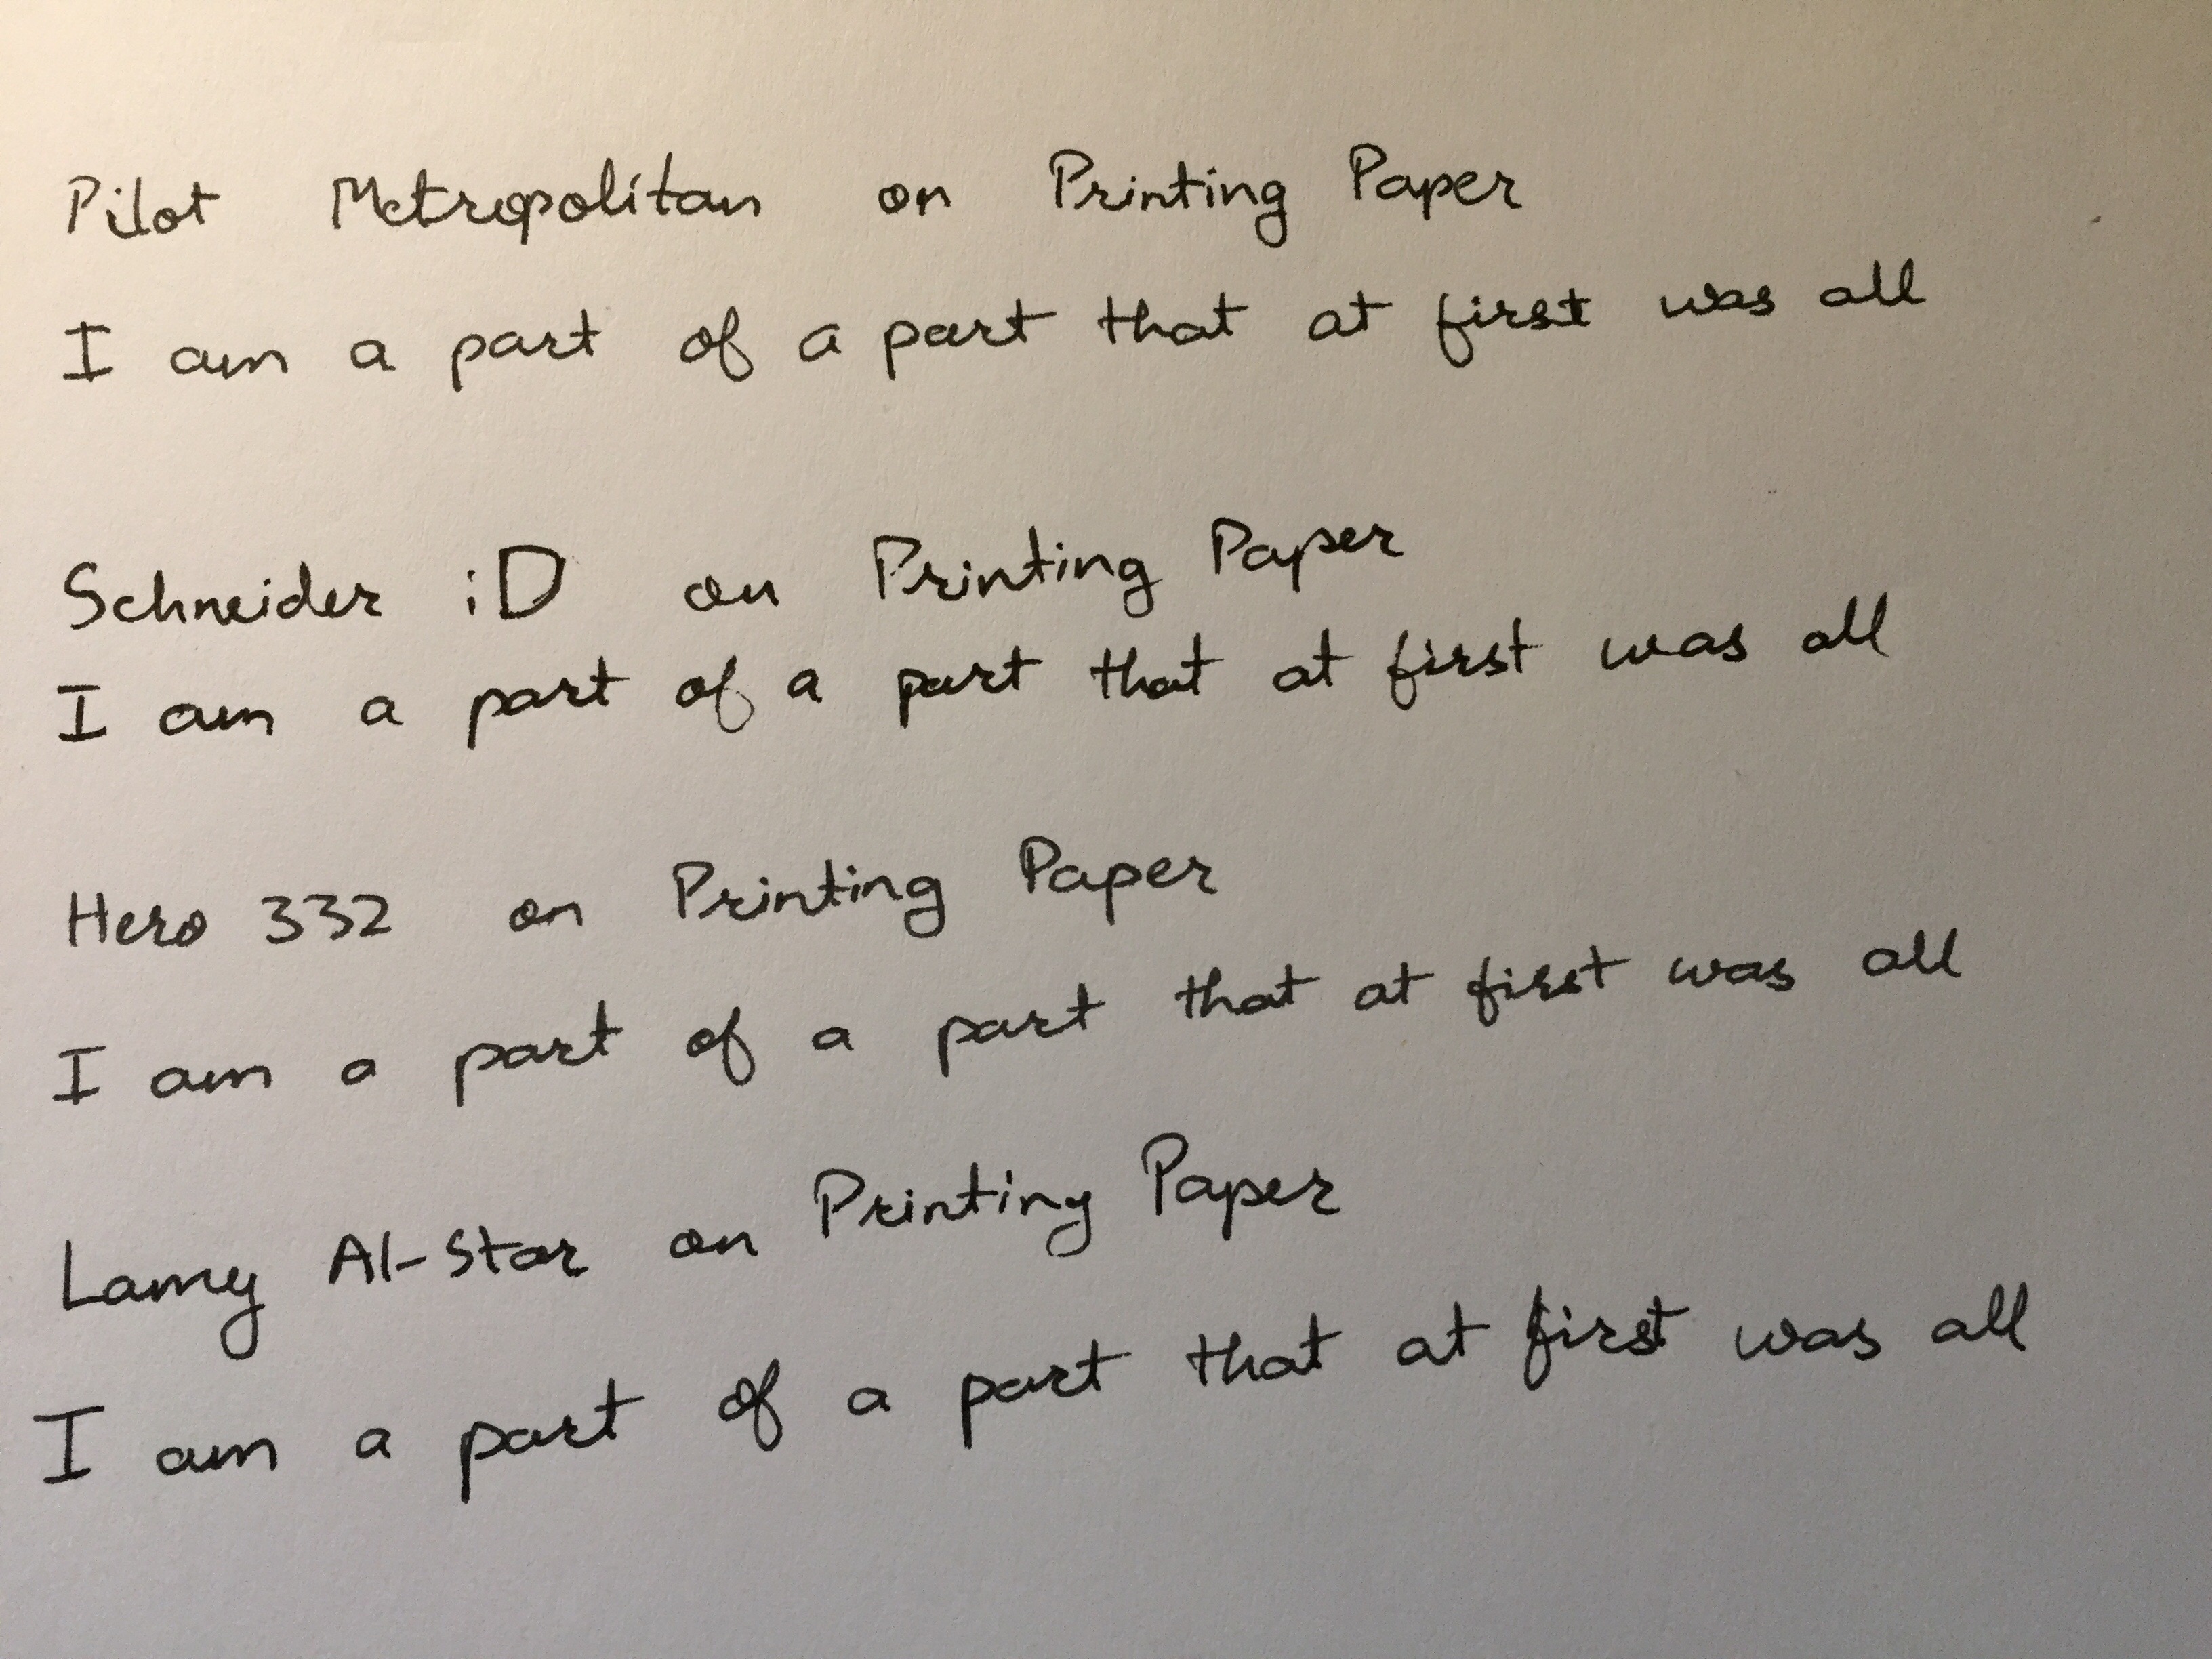 Pilot Metropolitan on Printing Paper
I am a part of a part that at first was all
Schneider iD on Printing Paper
I am a part of a part that at first was all
Hero 332 on Printing Paper
I am a part of a part that at first was all
Lamy Al-Star on Printing Paper
I am a part of a part that at first was all